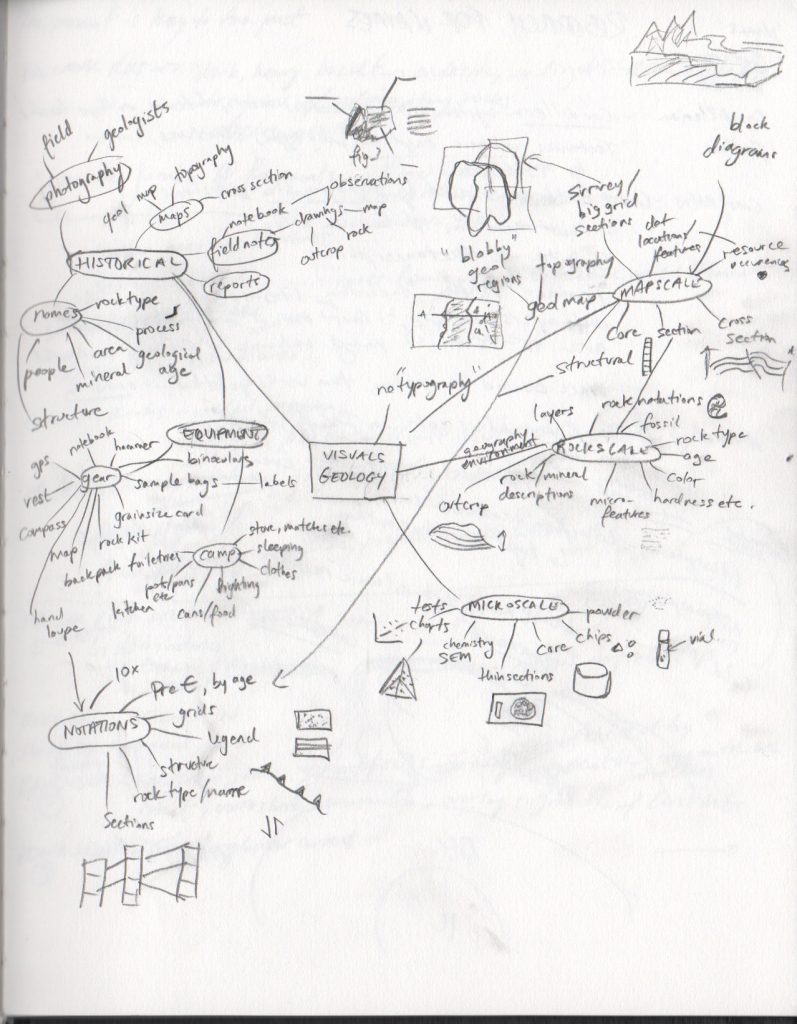 field
geologists
photography
geol map
topography
maps
cross section
HISTORICAL
notebook
field notes
observations
drawings
map
rock
outcrop
reports
names
rocktype
process
area
geological
age
mineral
people
structure
fig.
block
diagrams
survey/
big grid
sections
dot
locations/
features
resource
occurences
"blobby"
geo
regions
topography
geol map
MAPSCALE
core
section
cross
section
structural
no "typography"
VISUALS
GEOLOGY
EQUIPMENT
notebook
hammer
binoculars
gps
gear
sample bags
labels
vest
grainsize card
compass
rock kit
map
backpack
hand
loupe
toiletries
camp
stove, matches etc.
sleeping
clothes
lighting
pots/pans
etc
kitchen
cans/food
layers
rock notations
fossil
geography
environment
ROCKSCALE
rock type
age
color
hardness etc.
rock/mineral
descriptions
micro-
features
outcrop
MICROSCALE
tests
charts
powder
chips
vial
chemistry
SEM
core
thin sections
10x
Pre Є, by age
NOTATIONS
grids
legend
structure
rock type/name
Sections